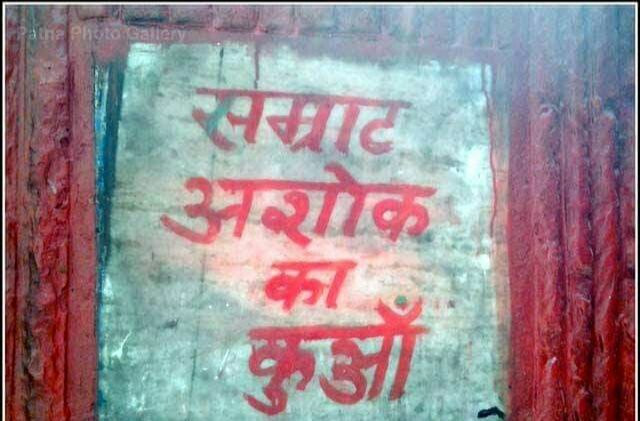 Patna Photo Gallery
सम्राट
अशोक
का
कुआँ